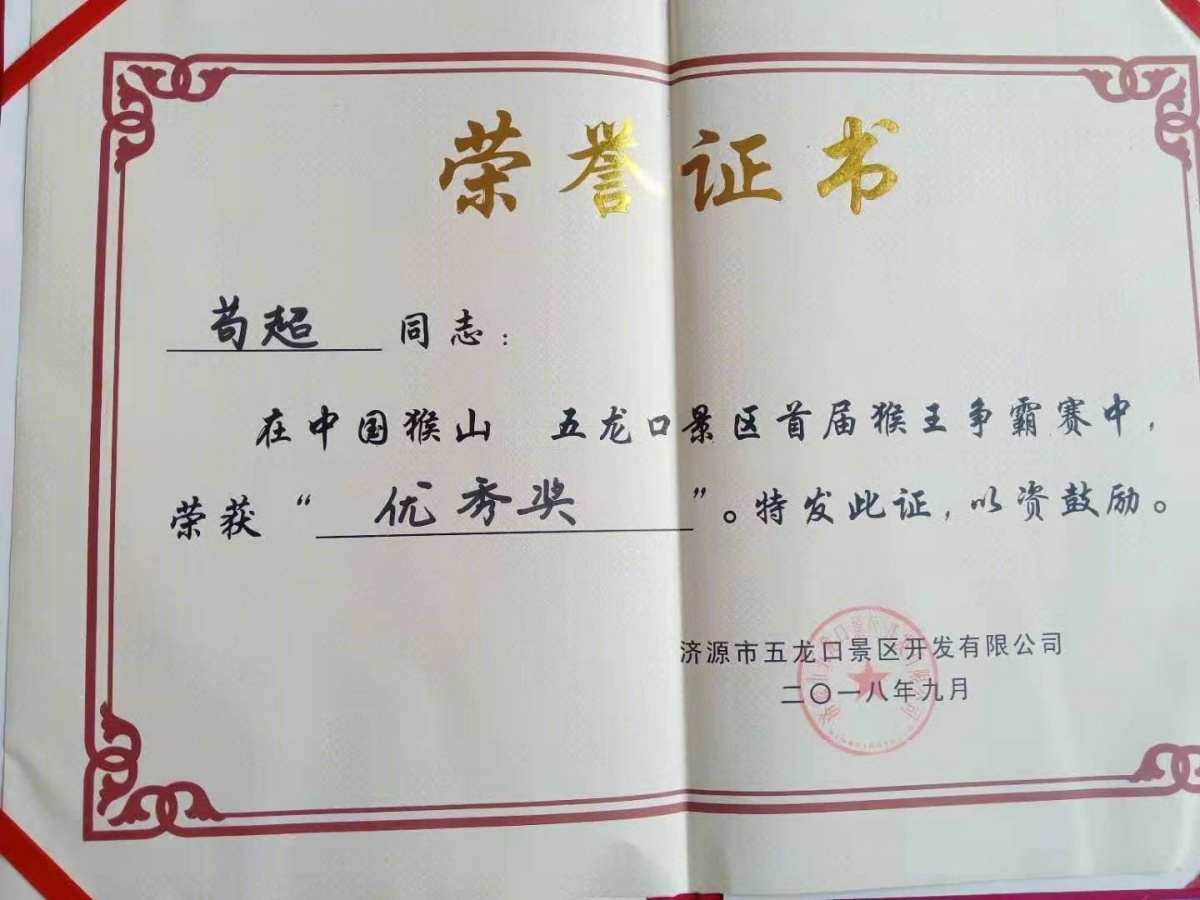 荣誉证书
苟超 同志：
在中国猴山 五龙口景区首届猴王争霸赛中，
荣获“优秀奖”。特发此证，以资鼓励。
济源市五龙口景区开发有限公司
二〇一八年九月